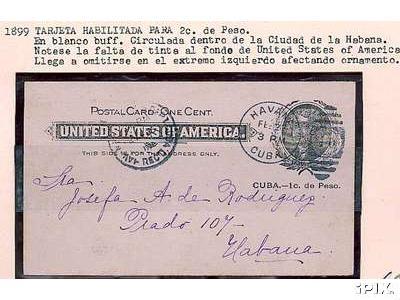 1899 TARJETA HABILITADA PARA 2c. de Peso.
En blanco buff. Circulada dentro de la Ciudad de la Habana.
Notese la falta de tinta al fondo de United States of America
Llega a omitirse en el extremo izquierdo afectando ornamento.
POSTAL CARD-ONE CENT.
UNITED STATES OF AMERICA.
THIS SIDE IS FOR THE ADDRESS ONLY.
HAVANA
CUBA
CUBA.-1c. de Peso.
Sra
Josefa A. de Rodriguez
Prado 107-
Habana.
iPIX